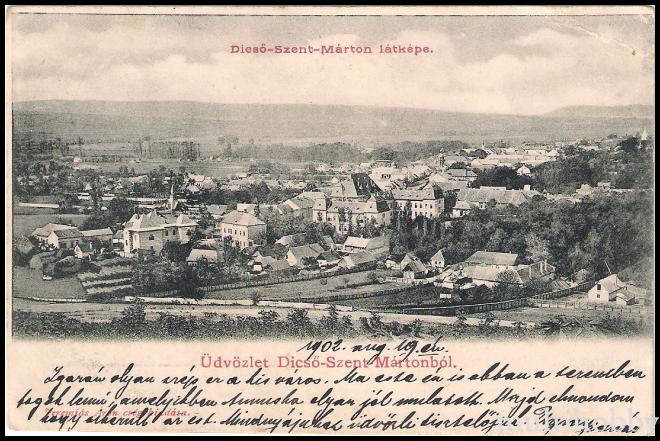 Dicső-Szent-Márton látképe.
1902. aug. 19. én.
Üdvözlet Dicső-Szent-Mártonból.
Igazán olyan szép ez a kis város. Ma este én is abban a teremben
fogok lenni, amelyikben Annuska olyan jól mulatott. Majd elmondom
Jeremiás kiadása.
hogy sikerült az est. Mindnyájukat üdvözli tisztelője